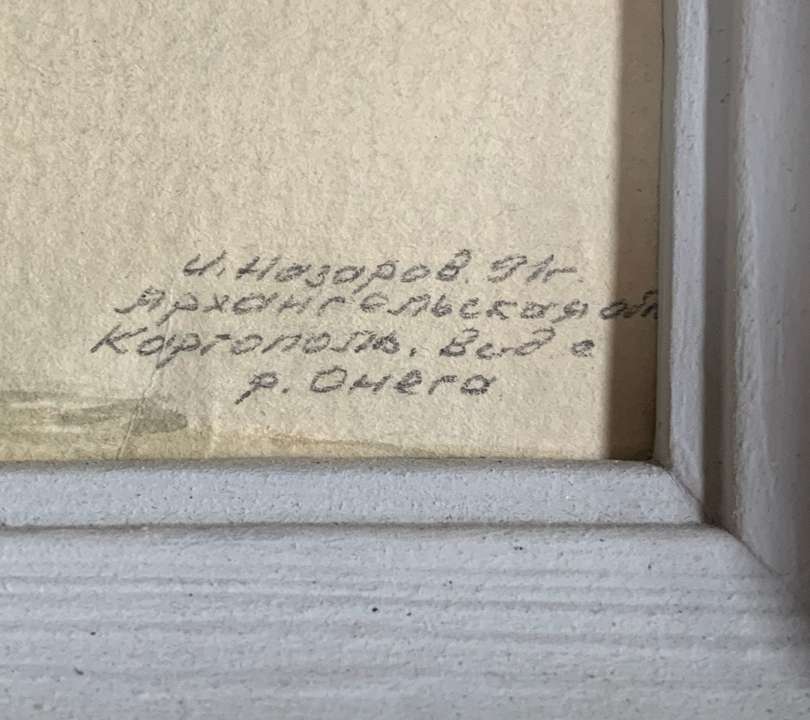 И. Назаров. 91г.
Архангельская обл
Каргополь. Вид с
р. Онега